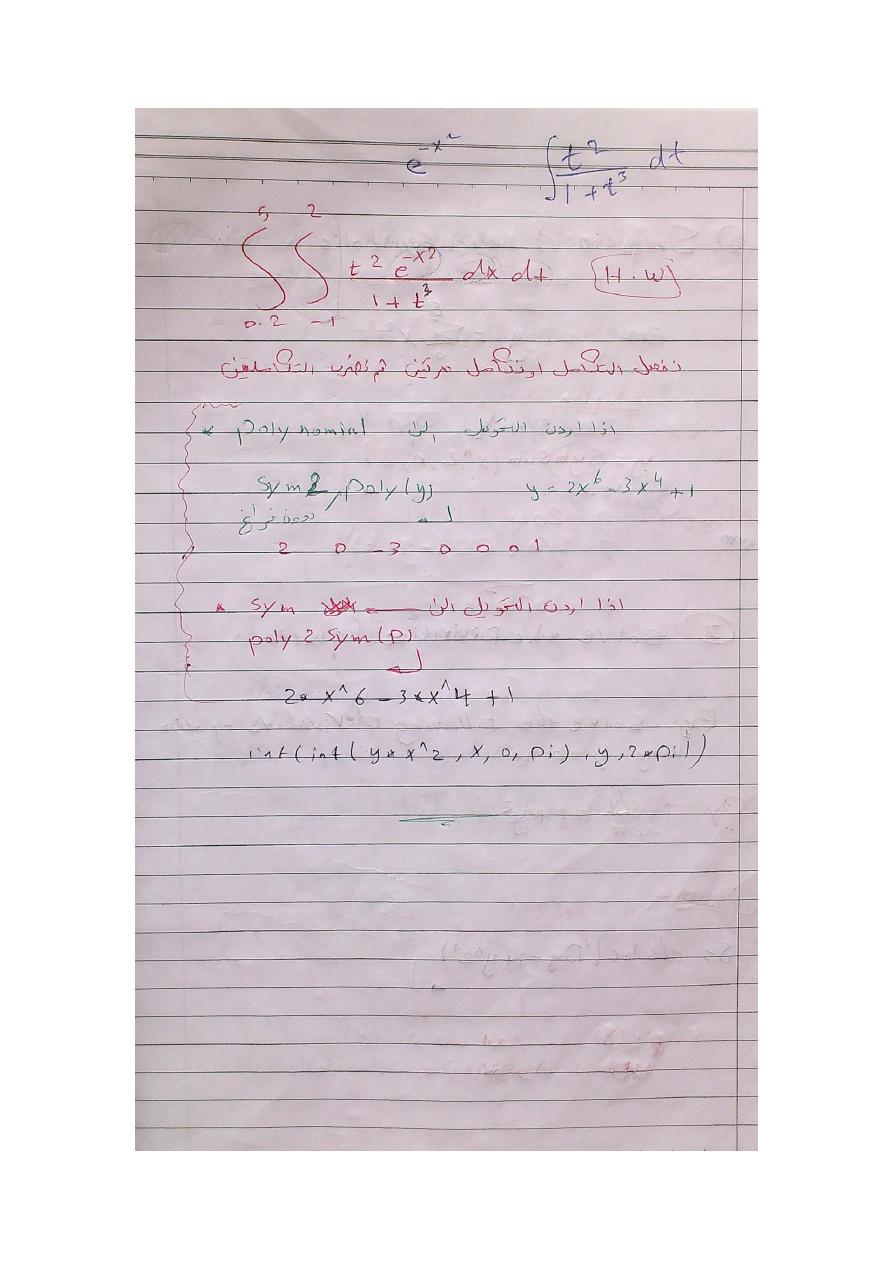 e^-x^2 ∫ t^2 / 1+t^3 dt
∫_0.2^5 ∫_-1^2 t^2 e^-x^2 / 1+t^3 dx dt H.W
نفصل التكامل او نتكامل مرتين ثم نضرب التكاملين
* polynomial اذا اردت التحويل الى
sym2poly(y) y = 2x^6 - 3x^4 + 1
بدون فراغ
2 0 -3 0 0 0 1
* sym اذا اردت التحويل الى
poly 2 sym(p)
2* x^6 - 3*x^4 + 1
int(int(y* x^2, x, 0, pi), y, 2*pi)